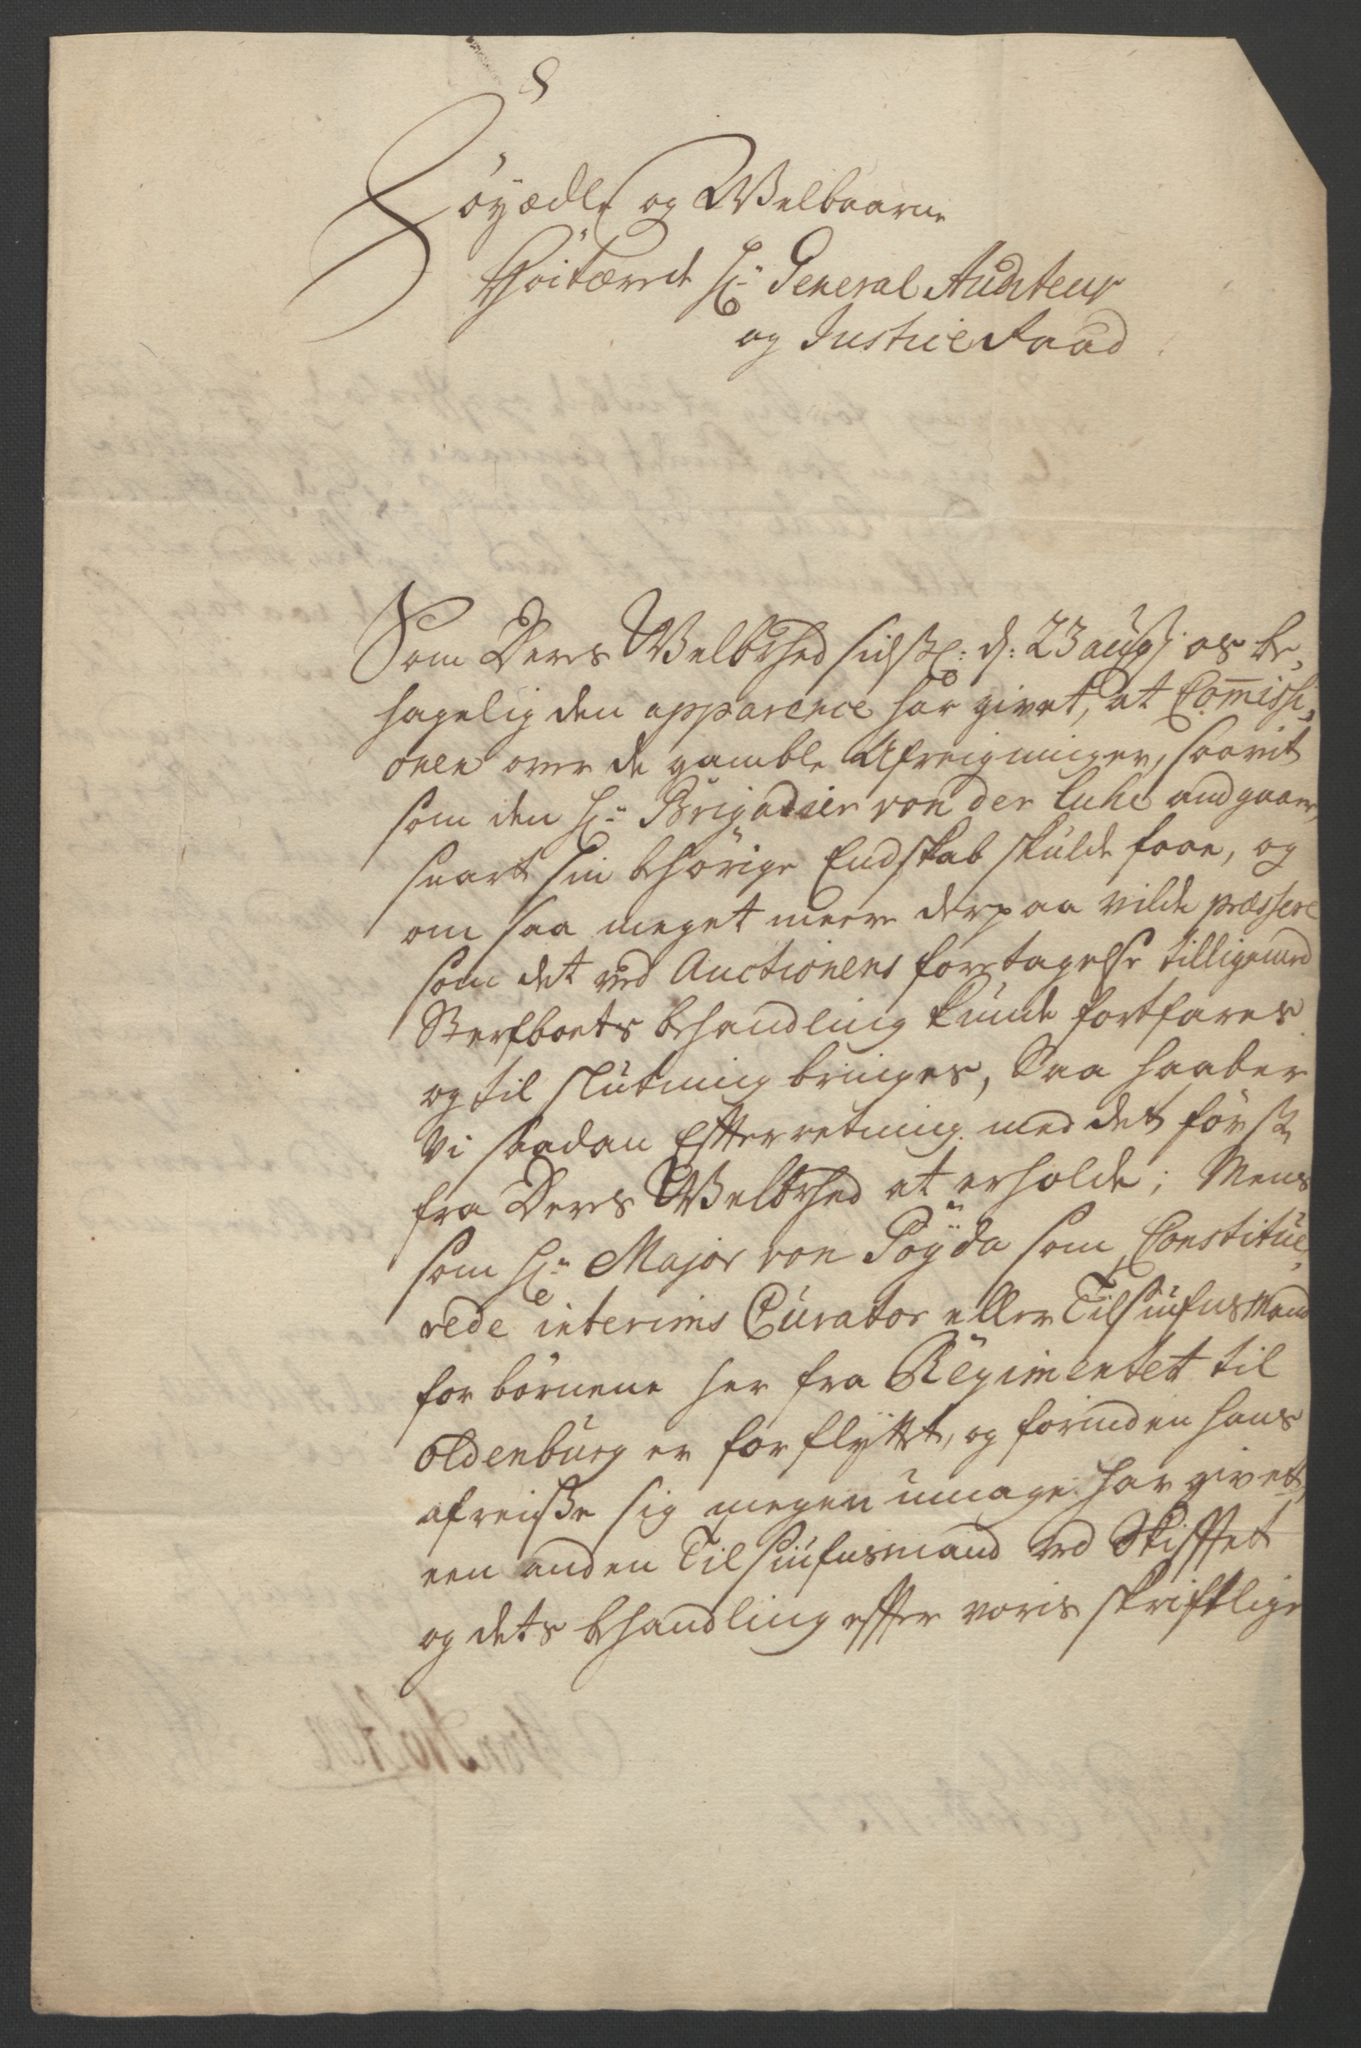 8
Höyædle og Welbaarne
Høitærede Hr: General Auditeur
og Justice Raad
Som Deres Welbrhed sidstl: d: 23 augs: os be,
hagelig den apparence har givet, at Com̅issi,
onen over de gamble Afreigninger, saavit
som den Hr: Brigadier von der Luhe andgaaer,
snart sin behörige Endskab skulde faae, og
om saa meget meere derpaa vilde præssere
som det ved Auctionens foretagelse tilligemed
Sterfboets behandling kunde fortfares
og til slutning bringes, Saa haaber
Vi saadan Efterretning med det förste
fra Deres Welbrhed at erholde; Mens
som Hr: Major von Pöÿda som Constitue,
rede interims Curator eller Tilsiufns Mand
for börnene her fra Regimentet til
Oldenburg er forflÿttet, og forinden hans
afreiße sig megen umage har givet,
een anden Tilsiufnsmand ved Skifftet
og dets behandling efter voris skriftlige